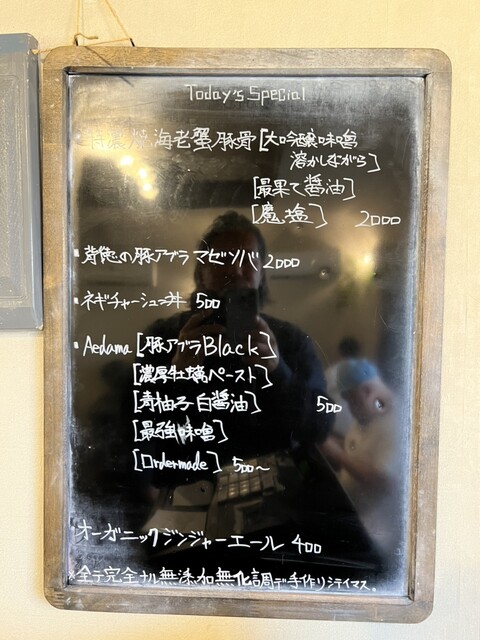 Today's Special
海老蟹豚骨[大吟醸味噌
溶かしながら]
[最果て醤油]
[魔塩] 2000
・背徳の豚アブラマゼソバ 2000
・ネギチャーシュー丼 500
・Aedama[豚アブラBlack]
[濃厚牡蠣ペースト]
[青柚子白醤油] 500
[最強味噌]
[Ordermade] 500〜
・オーガニックジンジャーエール 400
※全テ完全ナル無添加無化調デ手作リシテイマス。